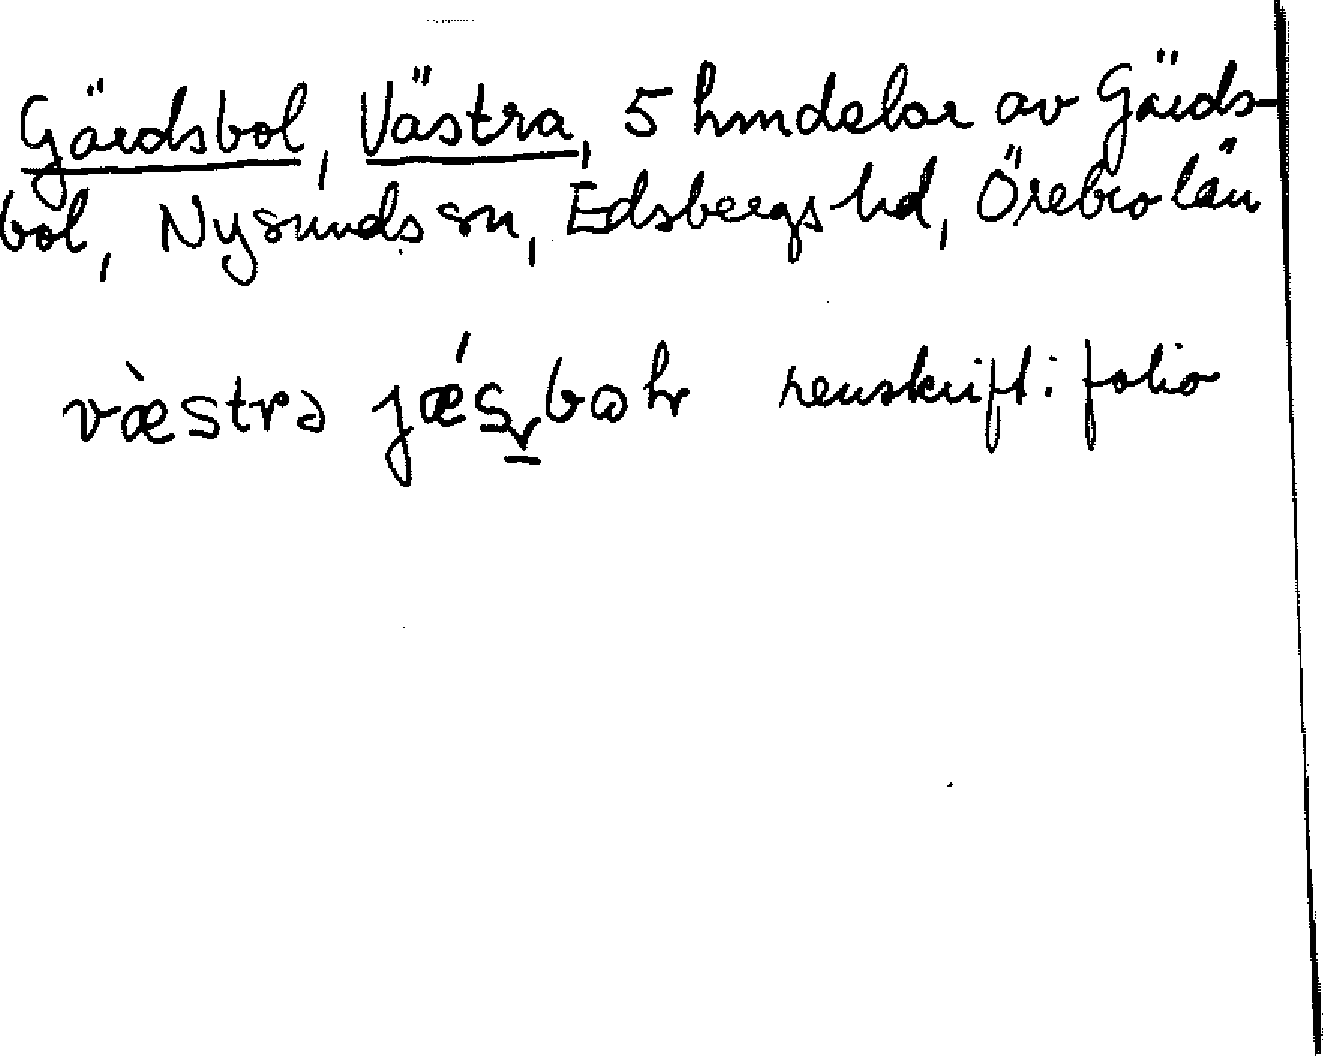 Gärdsbol, Västra, 5 hmdelar av Gärds-
bol, Nysunds sn, Edsbergs hd, Örebro län
væ̀stra jǽs̠bωhr renskrift: folio